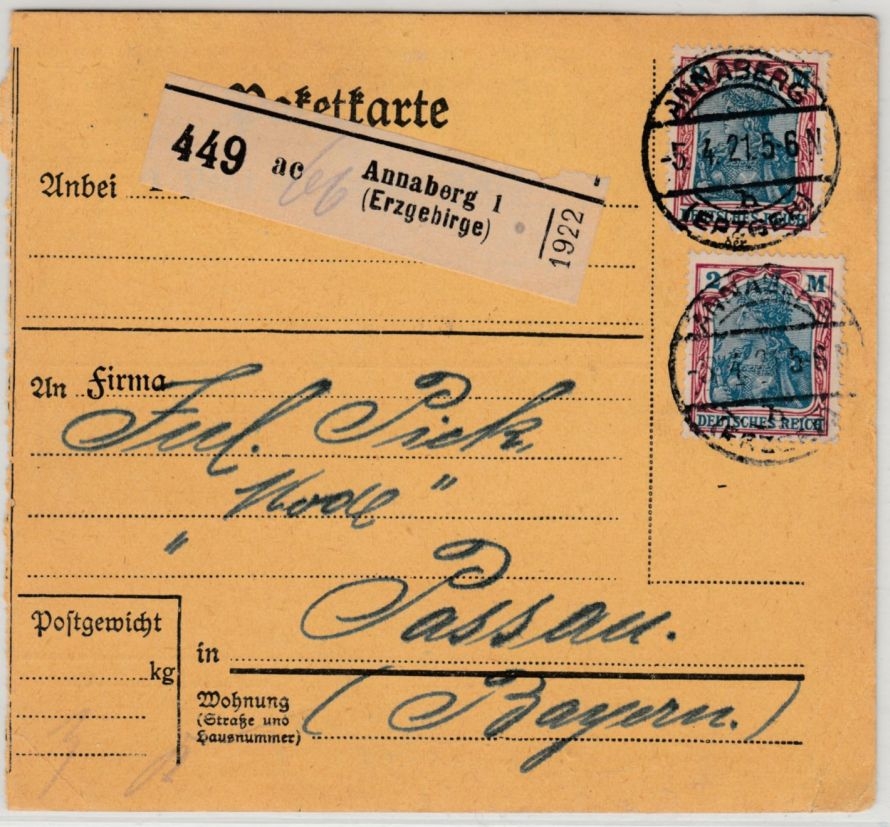 Paketkarte
449 ac Annaberg 1
(Erzgebirge)
1922
Anbei
An Firma
Jul. Pick,
"Mode"
"
Passau.
in
(Bayern.)
Postgewicht
kg
Wohnung
(Straße und
Hausnummer)
M
ANNABERG
-5. 4. 21. 5-6 N
b
(ERZGEB)
DEUTSCHES REICH
2 M
ANNABERG
4. 21. 5
b
(ERZGEB
DEUTSCHES REICH